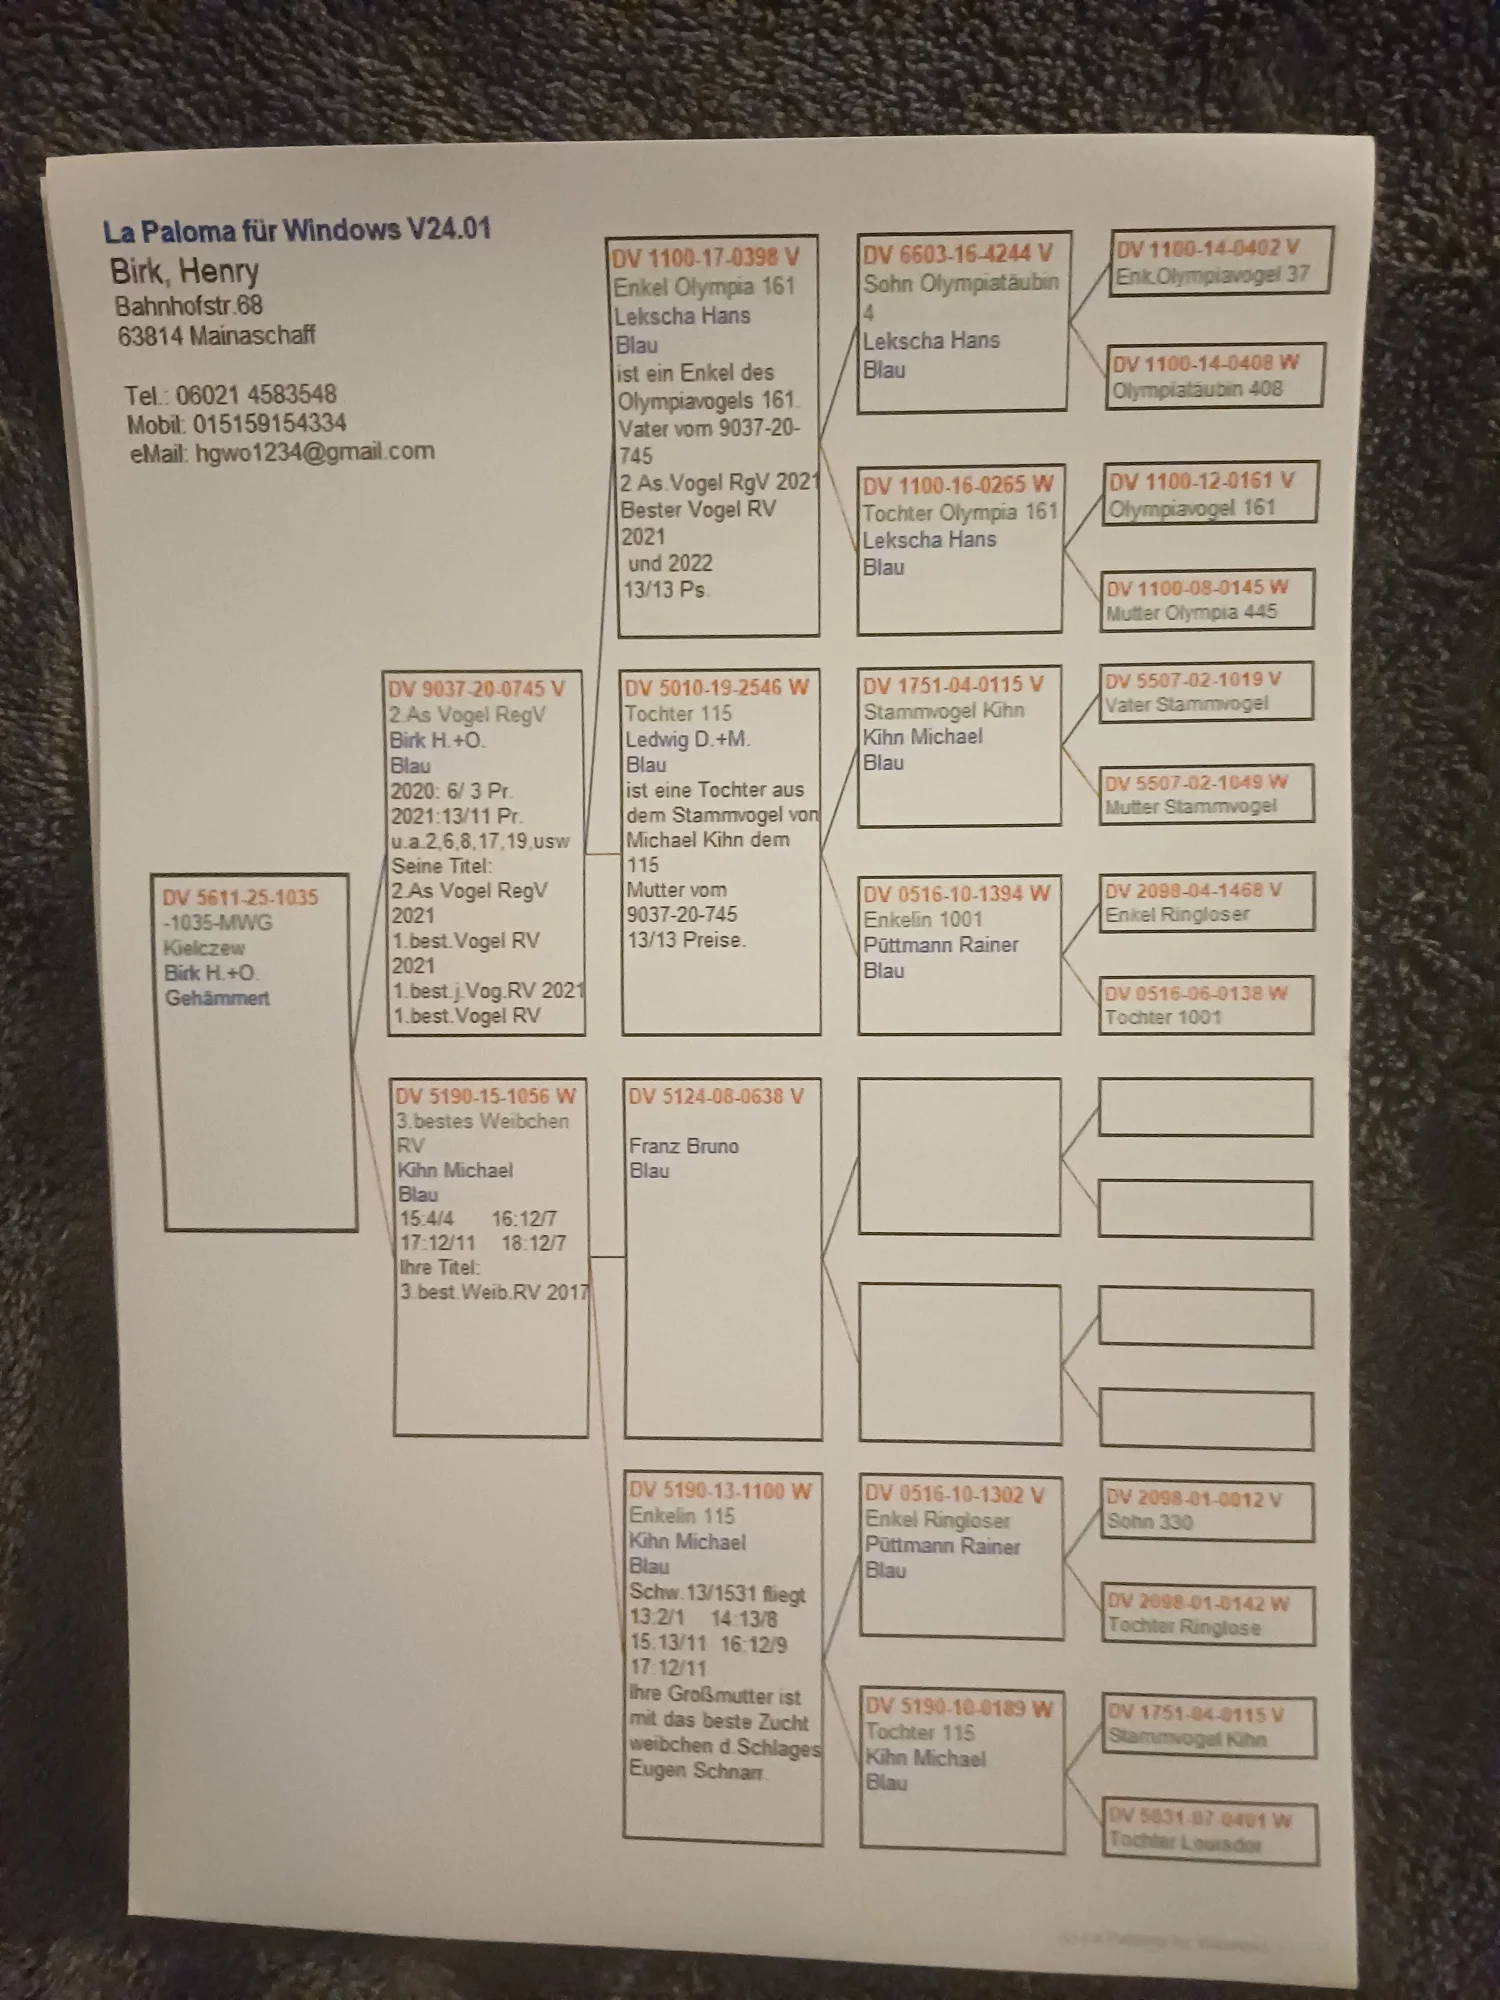 La Paloma für Windows V24.01
Birk, Henry
Bahnhofstr.68
63814 Mainaschaff
Tel.: 06021 4583548
Mobil: 015159154334
eMail: hgwo1234@gmail.com
DV 5611-25-1035
-1035-MWG
Kielczew
Birk H.+O.
Gehämmert
DV 9037-20-0745 V
2.As Vogel RegV
Birk H.+O.
Blau
2020: 6/ 3 Pr.
2021:13/11 Pr.
u.a.2,6,8,17,19,usw
Seine Titel:
2.As Vogel RegV
2021
1.best.Vogel RV
2021
1.best.j.Vog.RV 2021
1.best.Vogel RV
DV 5190-15-1056 W
3.bestes Weibchen
RV
Kihn Michael
Blau
15:4/4 16:12/7
17:12/11 18:12/7
Ihre Titel:
3.best.Weib.RV 2017
DV 1100-17-0398 V
Enkel Olympia 161
Lekscha Hans
Blau
ist ein Enkel des
Olympiavogels 161.
Vater vom 9037-20-
745
2 As.Vogel RgV 2021
Bester Vogel RV
2021
und 2022
13/13 Ps.
DV 5010-19-2546 W
Tochter 115
Ledwig D.+M.
Blau
ist eine Tochter aus
dem Stammvogel von
Michael Kihn dem
115
Mutter vom
9037-20-745
13/13 Preise.
DV 5124-08-0638 V
Franz Bruno
Blau
DV 5190-13-1100 W
Enkelin 115
Kihn Michael
Blau
Schw.13/1531 fliegt
13:2/1 14:13/8
15:13/11 16:12/9
17:12/11
Ihre Großmutter ist
mit das beste Zucht
weibchen d.Schlages
Eugen Schnarr.
DV 6603-16-4244 V
Sohn Olympiatäubin
4
Lekscha Hans
Blau
DV 1100-16-0265 W
Tochter Olympia 161
Lekscha Hans
Blau
DV 1751-04-0115 V
Stammvogel Kihn
Kihn Michael
Blau
DV 0516-10-1394 W
Enkelin 1001
Püttmann Rainer
Blau
DV 0516-10-1302 V
Enkel Ringloser
Püttmann Rainer
Blau
DV 5190-10-0189 W
Tochter 115
Kihn Michael
Blau
DV 1100-14-0402 V
Enk.Olympiavogel 37
DV 1100-14-0408 W
Olympiatäubin 408
DV 1100-12-0161 V
Olympiavogel 161
DV 1100-08-0145 W
Mutter Olympia 445
DV 5507-02-1019 V
Vater Stammvogel
DV 5507-02-1049 W
Mutter Stammvogel
DV 2098-04-1468 V
Enkel Ringloser
DV 0516-06-0138 W
Tochter 1001
DV 2098-01-0012 V
Sohn 330
DV 2098-01-0142 W
Tochter Ringlose
DV 1751-04-0115 V
Stammvogel Kihn
DV 5831-07-0401 W
Tochter Louisdor